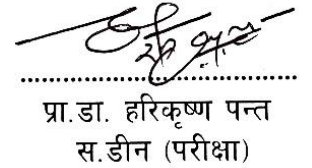 प्रा.डा. हरिकृष्ण पन्त
स.डीन (परीक्षा)